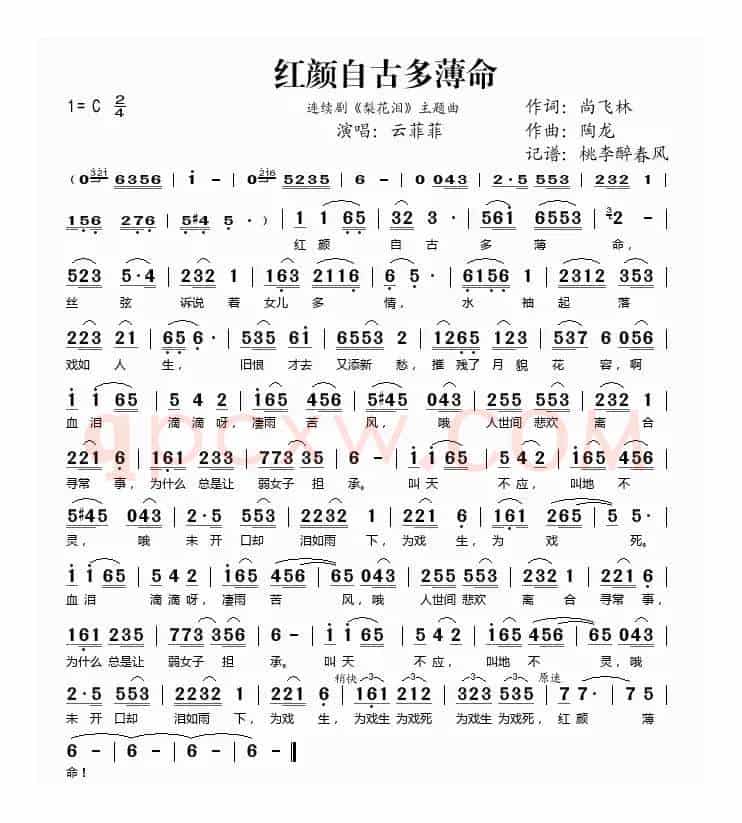 红颜自古多薄命
1= C 2/4
连续剧《梨花泪》主题曲
作词：尚飞林
演唱：云菲菲
作曲：陶龙
记谱：桃李醉春风
( 0 321 6356 | i - | 0 216 5235 | 6 - | 0 043 | 2·5 553 | 232 1 |
156 276 | 5#4 5 · ) | 1 1 65 | 32 3 · | 561 6553 | 3 2 - |
红 颜 自 古 多 薄 命，
523 5·4 | 232 1 | 163 2116 | 6 5 · | 6156 2312 353 |
丝 弦 诉说 若 女儿 多 情， 水 袖 起 落
223 21 | 65 6 · | 535 6i | 6553 2 | 1265 123 | 537 6 056 |
戏如 人 生， 旧恨 才去 又添新 愁，摧 残了 月 貌 花 容，啊
i i 65 | 5 4 2 | i65 456 | 5#45 043 | 255 553 | 232 1 |
血 泪 滴 滴 呀，凄雨 苦 风， 哦 人世间 悲欢 离 合
221 6 | 161 233 | 773 35 | 6 - | i i 65 | 5 4 2 | i65 456 |
寻常 事，为什么 总是让 弱女子 担 承。 叫天 不应，叫地 不
5#45 043 | 2·5 553 | 2232 1 | 221 6 | 161 265 | 5 5· |
灵， 哦 未 开 口却 泪如雨 下，为戏 生，为 戏 死。
i i 65 | 5 4 2 | i65 456 | 65 043 | 255 553 | 232 1 | 221 6 |
血 泪 滴 滴 呀，凄雨 苦 风，哦 人世间 悲欢 离 合 寻常 事，
161 235 | 773 356 | 6 - | i i 65 | 5 4 2 | i65 456 | 65 043 |
为什么 总是让 弱女子 担 承。 叫天 不应，叫地 不 灵，哦
稍快 原速
2·5 553 | 2232 1 | 221 6 | 161 212 | 323 535 | 7 7 · | 7 - |
未 开 口却 泪如雨 下，为戏 生，为戏生 为戏死 为戏生 为戏死，红 颜 薄
6 - | 6 - | 6 - | 6 - ‖
命！
qpcxw.COM